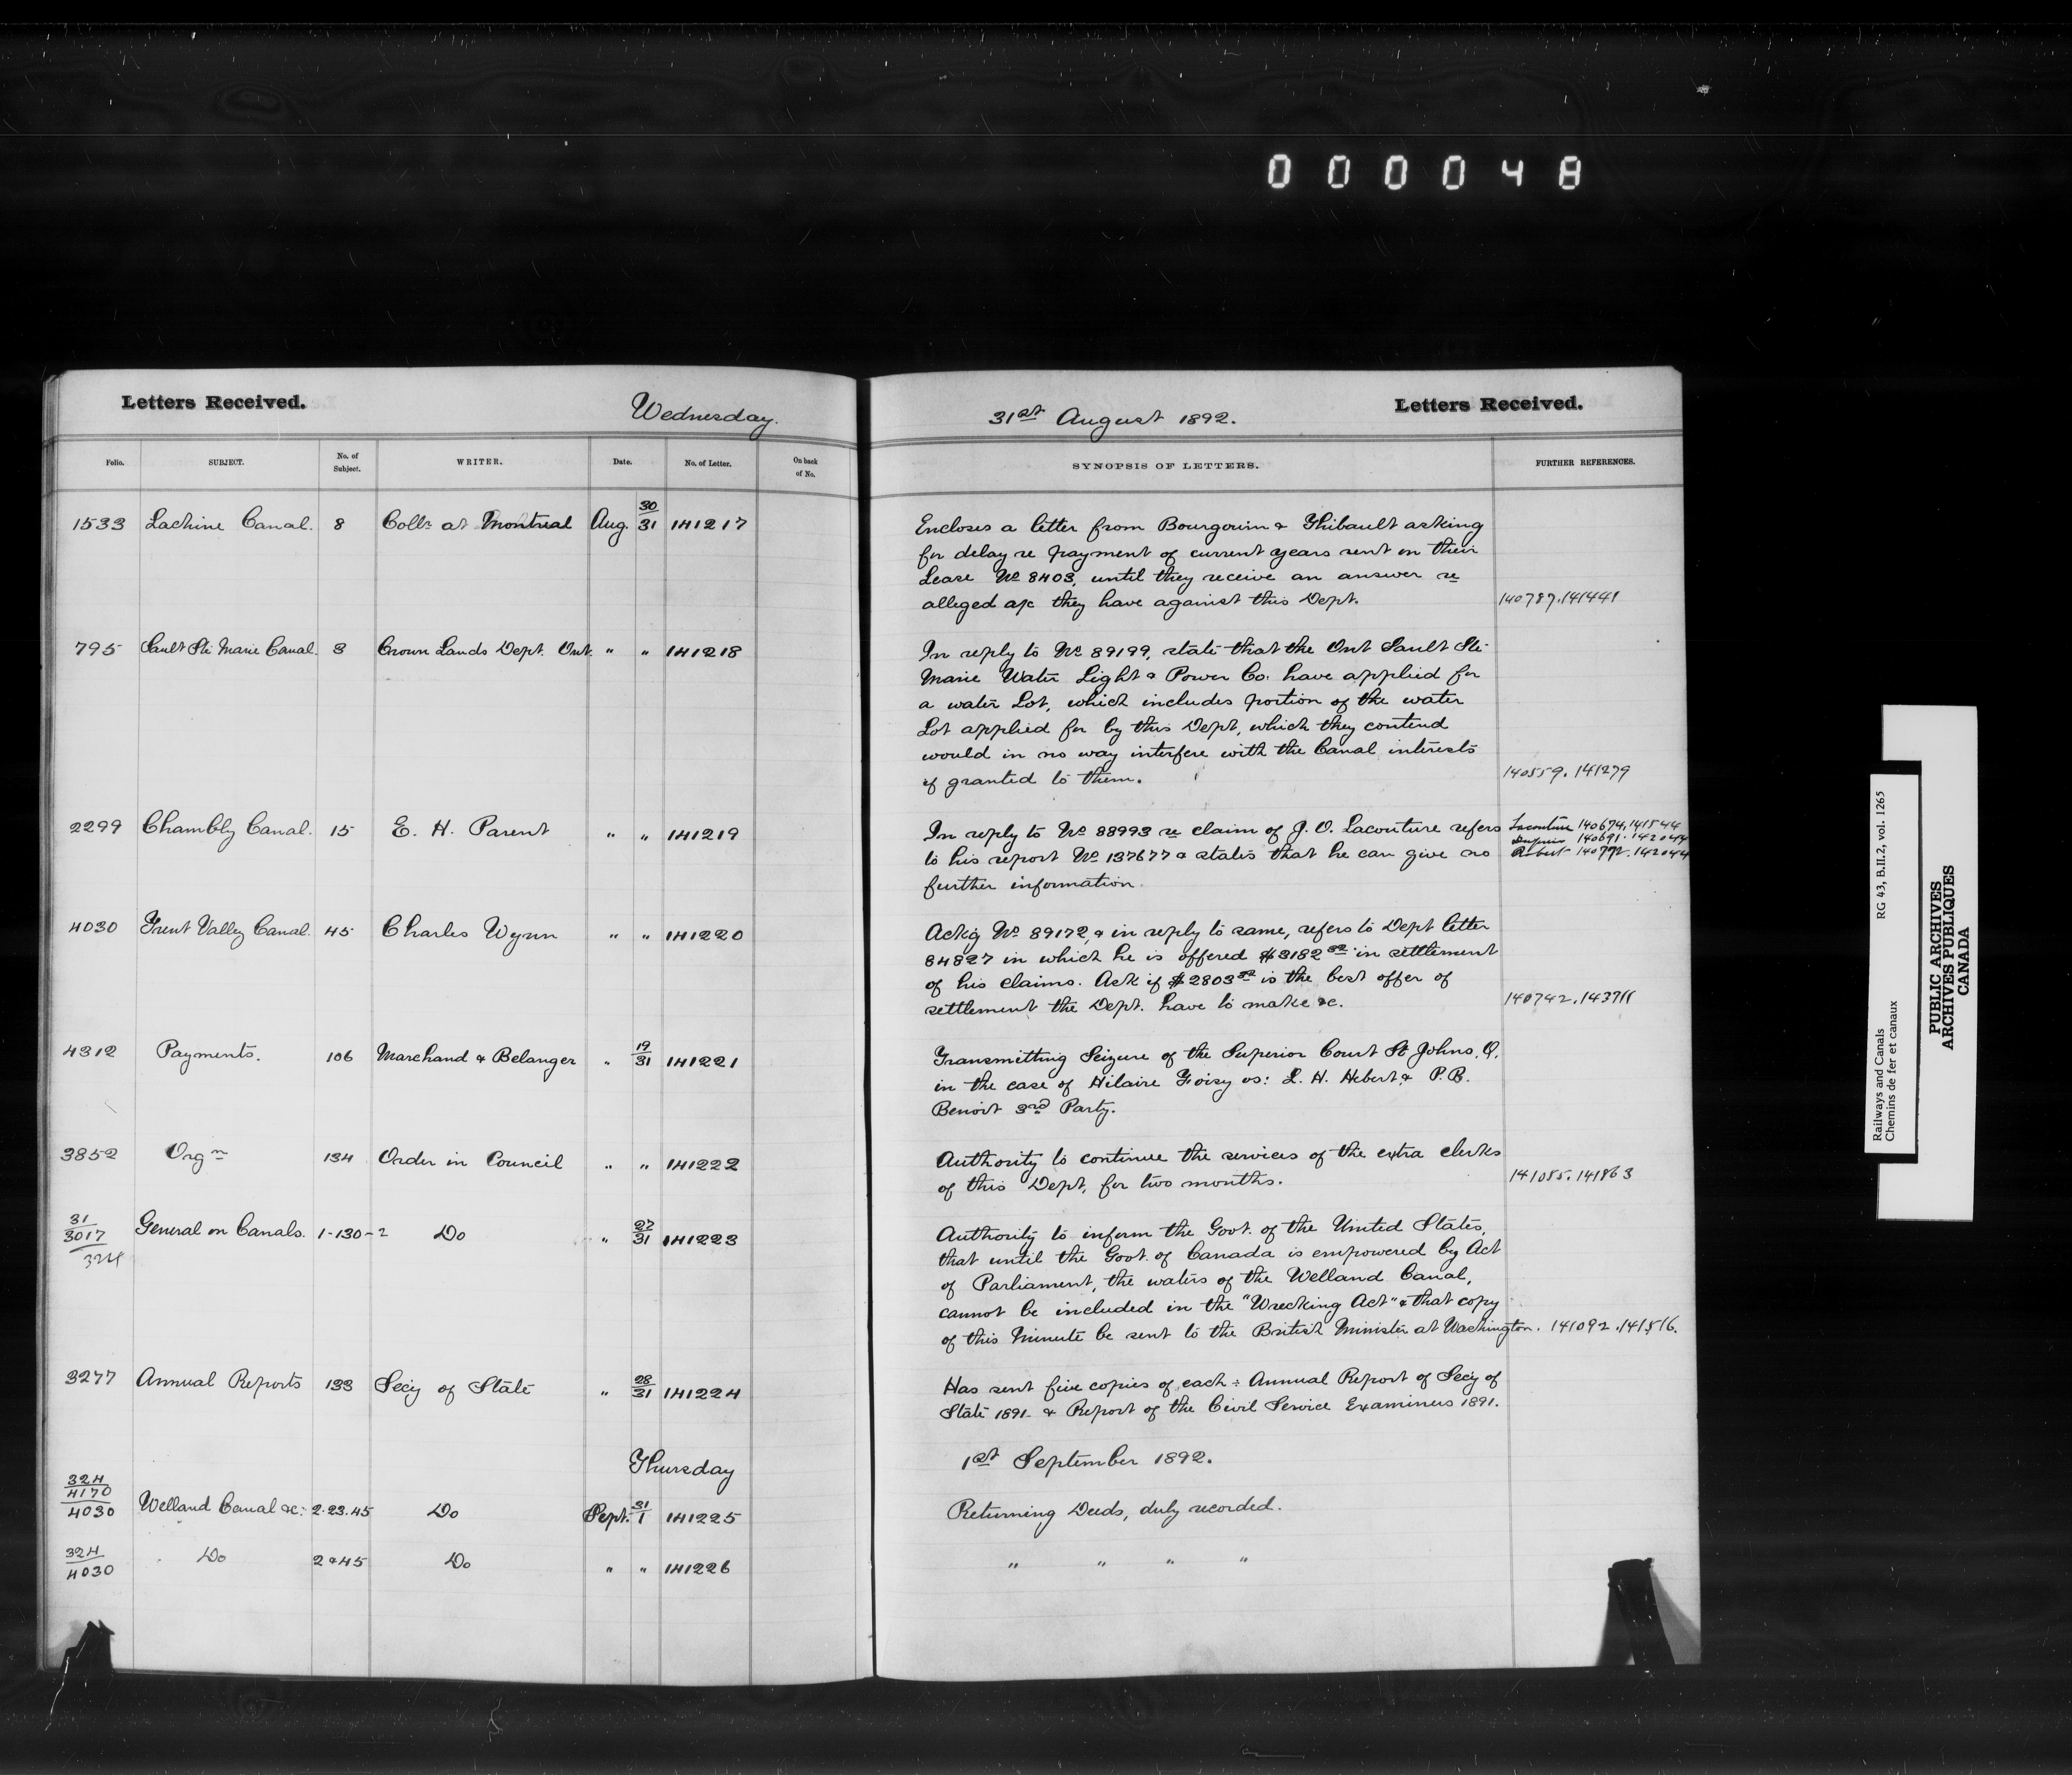 000048
Letters Received.
Wednesday.
31st August 1892.
Letters Received.
Folio. SUBJECT. No. of Subject. WRITER. Date. No. of Letter. On back of No. SYNOPSIS OF LETTERS. FURTHER REFERENCES.
1533 Lachine Canal. 8 Collr at Montreal Aug. 30/31 141217
Encloses a letter from Bourgouin & Thibault asking
for delay re payment of current years rent on their
Lease No 8403, until they receive an answer re
alleged a/c they have against this Dept. 140787.141441
795 Sault Ste Marie Canal. 3 Crown Lands Dept. Ont. " " 141218
In reply to No 89199, state that the Ont Sault Ste
Marie Water Light & Power Co. have applied for
a water Lot, which includes portion of the water
Lot applied for by this Dept, which they contend
would in no way interfere with the Canal interests
if granted to them. 140559.141279
2299 Chambly Canal. 15 E. H. Parent " " 141219
In reply to No 88993 re claim of J. O. Lacouture refers Lacouture 140674,141544
Dupuis 140691.142044
to his report No 137677 & states that he can give no Robert 140792.142044
further information
4030 Trent Valley Canal. 45 Charles Wynn " " 141220
Ackg No 89172, & in reply to same, refers to Dept letter
84827 in which he is offered $3182 32 in settlement
of his claims. Ask if $2803 32 is the best offer of
settlement the Dept. have to make &c. 140742.143711
4312 Payments. 106 Marchand & Belanger " 19/31 141221
Transmitting Seizure of the Superior Court St Johns. Q.
in the case of Hilaire Foisy vs: L. H. Hebert & P.B.
Benoit 3rd Party.
3852 Orgn 134 Order in Council " " 141222
Authority to continue the services of the extra clerks
of this Dept, for two months. 141085.141863
31/3017/324 General on Canals. 1-130-2 Do " 27/31 141223
Authority to inform the Govt. of the United States,
that until the Govt. of Canada is empowered by Act
of Parliament, the waters of the Welland Canal,
cannot be included in the "Wrecking Act" & that copy
of this Minute be sent to the British Minister at Washington. 141092.141516.
3277 Annual Reports 133 Secy of State " 28/31 141224
Has sent five copies of each :- Annual Report of Secy of
State 1891- & Report of the Civil Service Examiners 1891.
Thursday 1st September 1892.
324/4170/4030 Welland Canal &c: 2.23.45 Do Sept. 31/1 141225
Returning Deeds, duly recorded.
324/4030 Do 2 & 45 Do " " 141226
" " " "
Railways and Canals RG 43, B.II.2, vol. 1265
Chemins de fer et canaux
PUBLIC ARCHIVES
ARCHIVES PUBLIQUES
CANADA